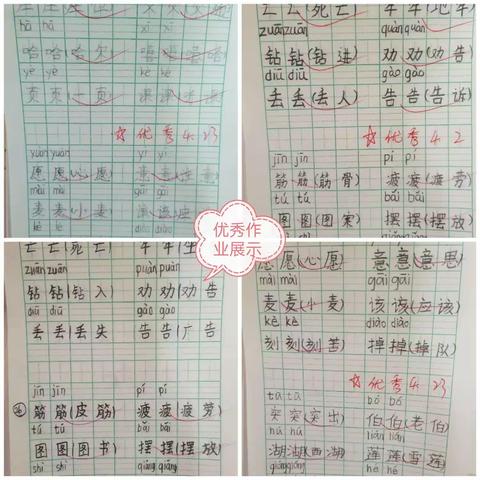 hā hā xī xī
哈哈(哈尔) 嘻嘻
yè yè kè kè
页页(一页) 课课
☆优秀4.23
yuàn yuàn yì yì
愿愿(心愿) 意意
mài mài gāi gāi
麦麦(小麦) 该该(应该)
kè kè diào diào
亡亡(死亡)
zuān zuān quàn quàn
钻钻(钻进) 劝劝(劝告)
diū diū gào gào
丢丢(丢人) 告告(告诉)
☆优秀4.2
jīn jīn pí pí
筋筋(筋骨) 疲疲(疲劳)
tú tú bǎi bǎi
图图(图案) 摆摆(摆放)
优秀作
业展示
亡亡(死亡)
zuān zuān quàn quàn
钻钻(钻入) 劝劝(劝告
diū diū gào gào
丢丢(丢失 告告(广告
jīn jīn pí pí
筋筋(皮筋) 疲疲(疲劳)
tú tú bǎi bǎi
图图(图书) 摆摆(摆放)
shì shì qiáng qiáng
愿愿(心愿) 意意(意思)
mài mài gāi gāi
麦麦(小麦) 该该(应该)
kè kè diào diào
刻刻(刻苦) 掉掉(掉队)
☆优秀4.23
tū tū bó bó
突突(突出) 伯伯(老伯)
hú hú lián lián
湖湖(西湖) 莲莲(雪莲)
hé hé